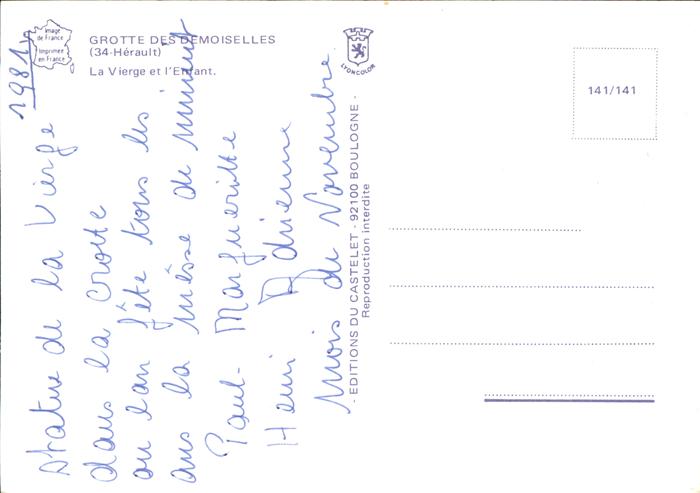 Image
de France
Imprimée
en France
GROTTE DES DEMOISELLES
(34-Hérault)
La Vierge et l'Enfant.
LYONCOLOR
141/141
- EDITIONS DU CASTELET - 92100 BOULOGNE -
Reproduction interdite
1981
Statue de la Vierge
dans la Grotte
ou lan fête tous les
ans la mésse de minuit
Paul- Margueritte
Henri Adrienne
mois de Novembre